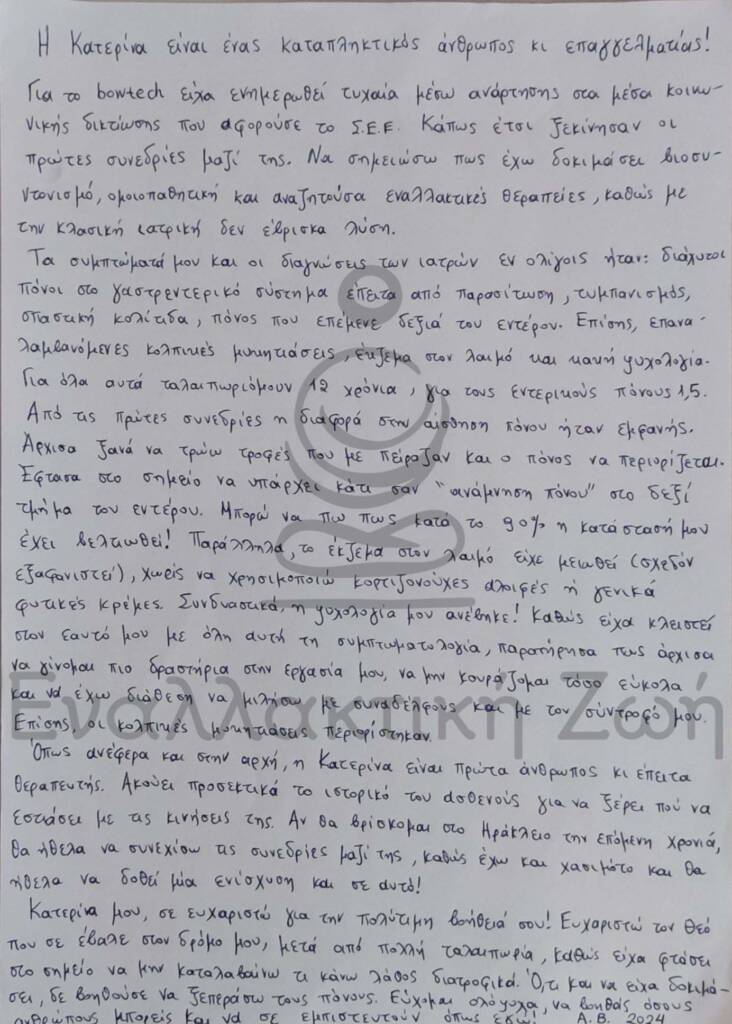 Η Κατερίνα είναι ένας καταπληκτικός άνθρωπος κι επαγγελματίας!
Για το bowtech είχα ενημερωθεί τυχαία μέσω ανάρτησης στα μέσα κοινω-
νικής δικτύωσης που αφορούσε το Σ.Ε.Ε. Κάπως έτσι ξεκίνησαν οι
πρώτες συνεδρίες μαζί της. Να σημειώσω πως έχω δοκιμάσει βιοσυ-
ντονισμό, ομοιοπαθητική και αναζητούσα εναλλακτικές θεραπείες, καθώς με
την κλασική ιατρική δεν έβρισκα λύση.
Τα συμπτώματά μου και οι διαγνώσεις των ιατρών εν ολίγοις ήταν: διάχυτοι
πόνοι στο γαστρεντερικό σύστημα έπειτα από παρασίτωση, τυμπανισμός,
σπαστική κολίτιδα, πόνος που επέμενε δεξιά του εντέρου. Επίσης, επανα-
λαμβανόμενες κολπικές μυκητιάσεις, έκζεμα στον λαιμό και κακή ψυχολογία.
Για όλα αυτά ταλαιπωριόμουν 12 χρόνια, για τους εντερικούς πόνους 1,5.
Από τις πρώτες συνεδρίες η διαφορά στην αίσθηση πόνου ήταν εμφανής.
Άρχισα ξανά να τρώω τροφές που με πείραζαν και ο πόνος να περιορίζεται.
Έφτασα στο σημείο να υπάρχει κάτι σαν "ανάμνηση πόνου" στο δεξί
τμήμα του εντέρου. Μπορώ να πω πως κατά το 90% η κατάστασή μου
έχει βελτιωθεί! Παράλληλα, το έκζεμα στον λαιμό είχε μειωθεί (σχεδόν
εξαφανιστεί), χωρίς να χρησιμοποιώ κορτιζονούχες αλοιφές ή γενικά
φυτικές κρέμες. Συνδυαστικά, η ψυχολογία μου ανέβηκε! Καθώς είχα κλειστεί
στον εαυτό μου με όλη αυτή τη συμπτωματολογία, παρατήρησα πως άρχισα
να γίνομαι πιο δραστήρια στην εργασία μου, να μην κουράζομαι τόσο εύκολα
και να έχω διάθεση να μιλήσω με συναδέλφους και με τον σύντροφό μου.
Επίσης, οι κολπικές μυκητιάσεις περιορίστηκαν.
Εναλλακτική Ζωή
Όπως ανέφερα και στην αρχή, η Κατερίνα είναι πρώτα άνθρωπος κι έπειτα
θεραπευτής. Ακούει προσεκτικά το ιστορικό του ασθενούς για να ξέρει πού να
εστιάσει με τις κινήσεις της. Αν θα βρίσκομαι στο Ηράκλειο την επόμενη χρονιά,
θα ήθελα να συνεχίσω τις συνεδρίες μαζί της, καθώς έχω και χασιμότο και θα
ήθελα να δοθεί μία ενίσχυση και σε αυτό!
Κατερίνα μου, σε ευχαριστώ για την πολύτιμη βοήθειά σου! Ευχαριστώ τον Θεό
που σε έβαλε στον δρόμο μου, μετά από πολλή ταλαιπωρία, καθώς είχα φτάσει
στο σημείο να μην καταλαβαίνω τι κάνω λάθος διατροφικά. Ό,τι και να είχα δοκιμά-
σει, δε βοηθούσε να ξεπεράσω τους πόνους. Εύχομαι ολόψυχα, να βοηθάς όσους
ανθρώπους μπορείς και να σε εμπιστευτούν όπως εγώ! Α.Β. 2024